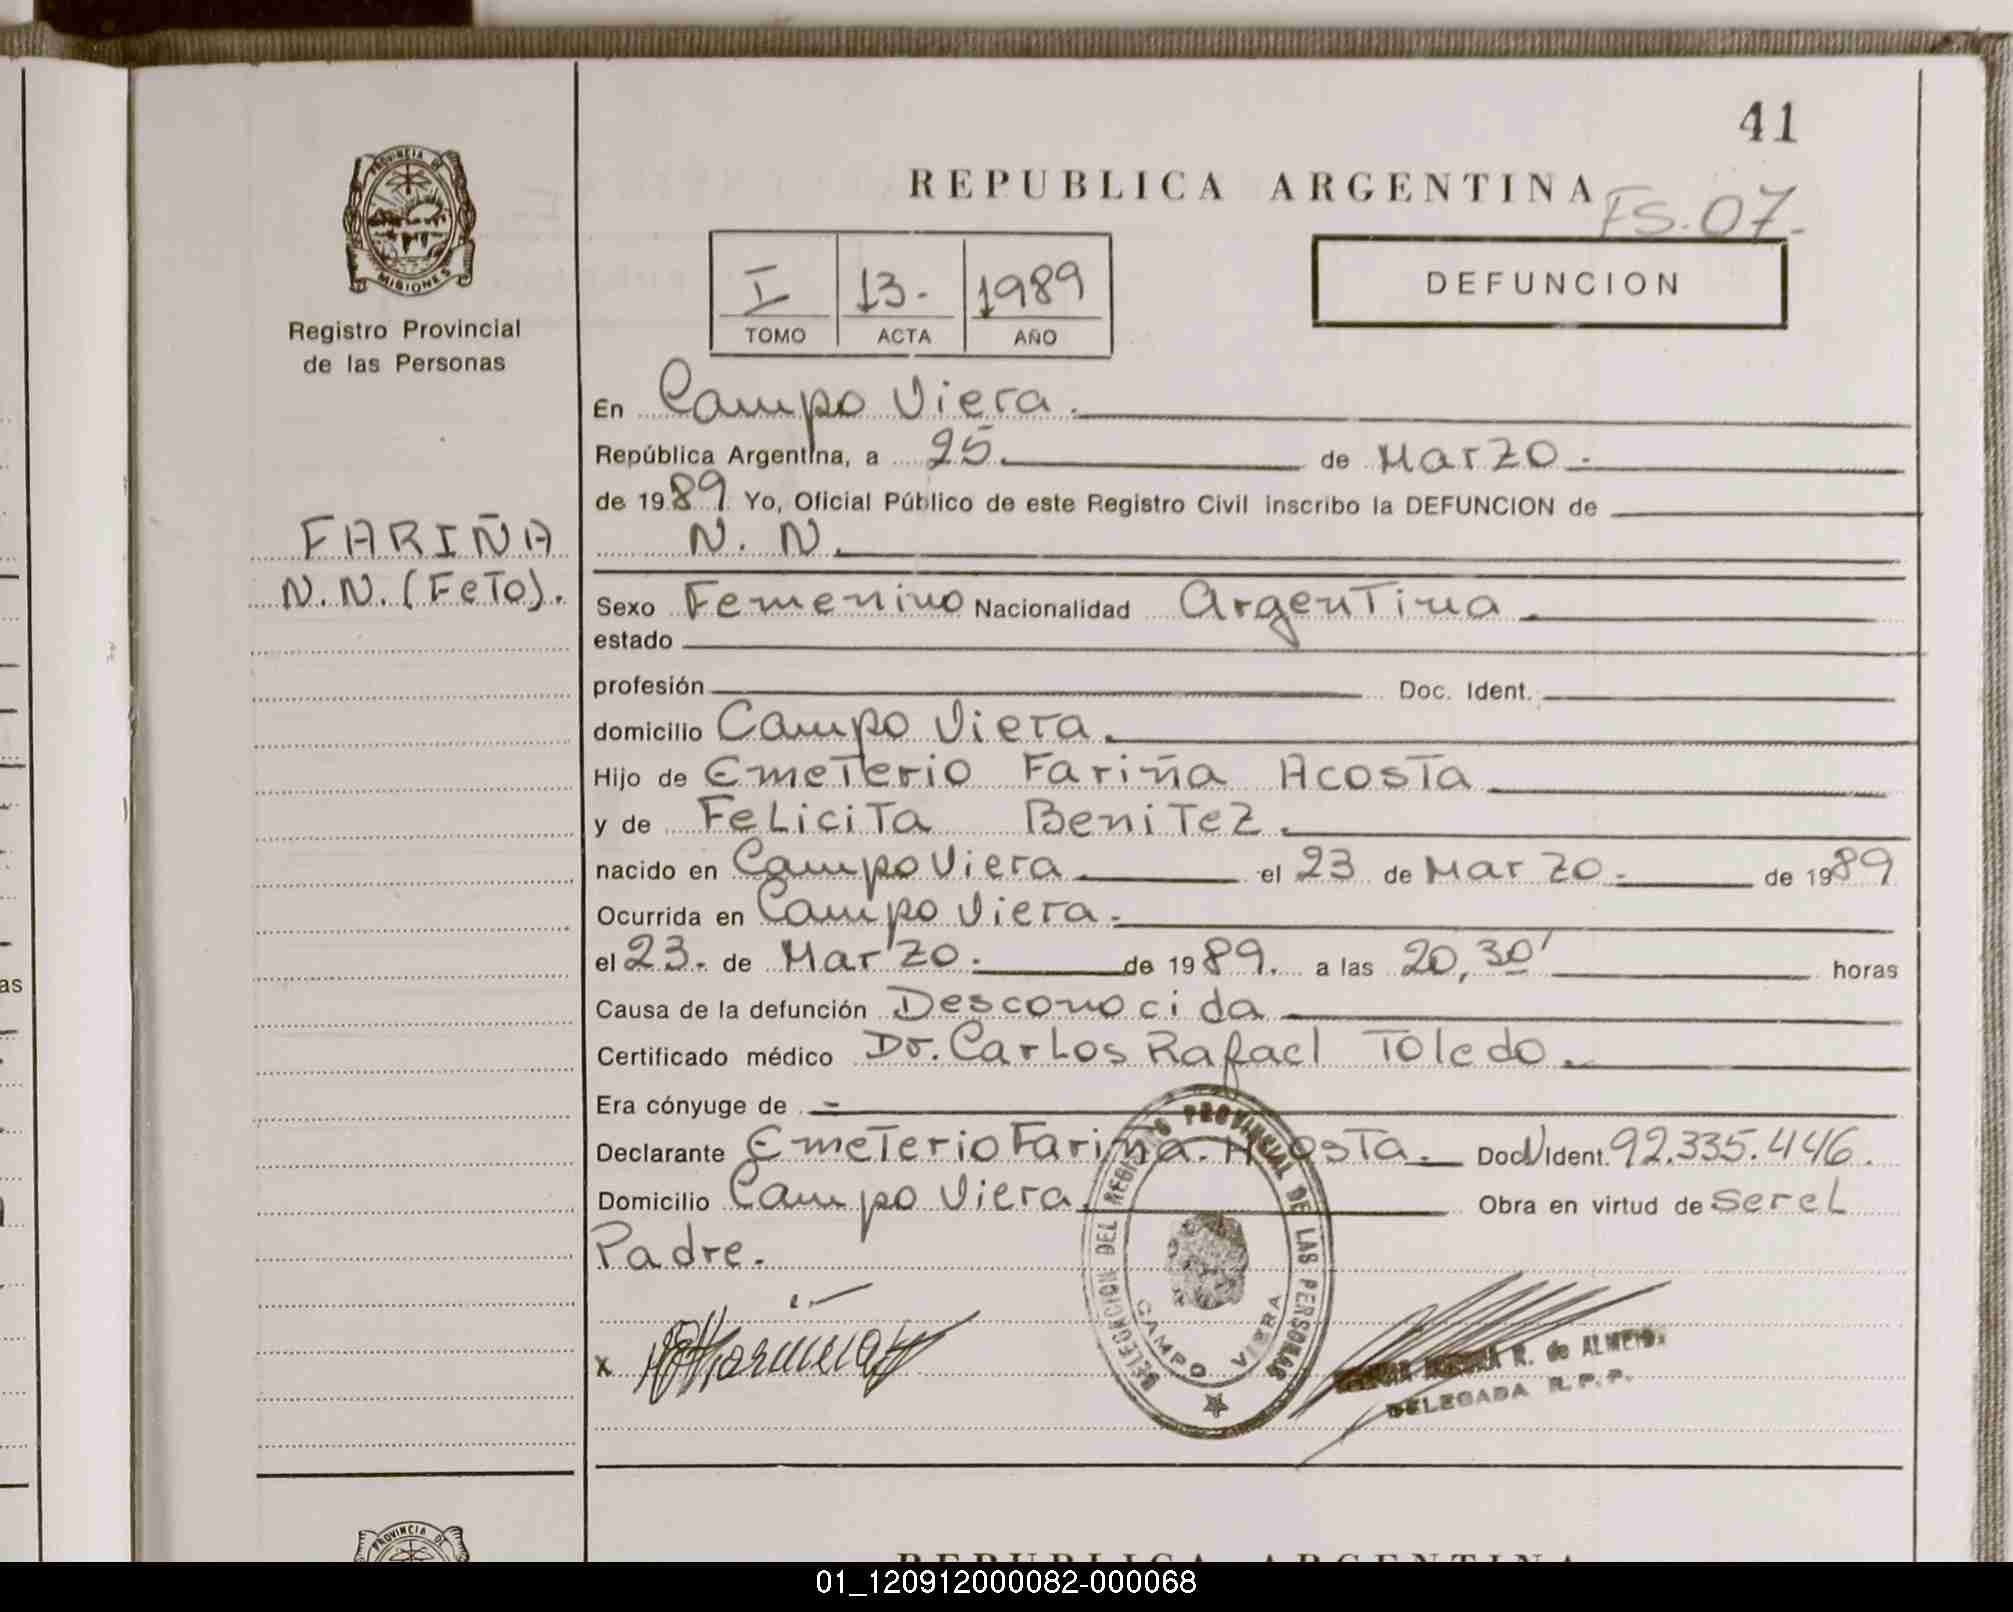 41
PROVINCIA DE
MISIONES
Registro Provincial
de las Personas
REPUBLICA ARGENTINA
FS. 07.
I 13. 1989
TOMO ACTA AÑO
DEFUNCION
En Campo Viera.
República Argentina, a 25 de Marzo.
de 1989. Yo, Oficial Público de este Registro Civil inscribo la DEFUNCION de
FARIÑA
N.N. (FeTo).
N. N.
Sexo Femenino Nacionalidad Argentina.
estado
profesión Doc. Ident.
domicilio Campo Viera.
Hijo de Emeterio Fariña Acosta
y de Felicita Benitez.
nacido en Campo Viera el 23 de Marzo. de 1989
Ocurrida en Campo Viera.
el 23. de Marzo. de 1989. a las 20,30' horas
Causa de la defunción Desconocida
Certificado médico Dr. Carlos Rafael Toledo.
Era cónyuge de -
Declarante Emeterio Fariña. Acosta. Doc. Ident. 92.335.446.
Domicilio Campo Viera. Obra en virtud de ser el
Padre.
DELEGACION DEL REGISTRO PROVINCIAL DE LAS PERSONAS
CAMPO VIERA
X
R. de ALMEID.
DELEGADA R.P.P.
PROVINCIA DE
REPUBLICA ARGENTINA
01_120912000082-000068